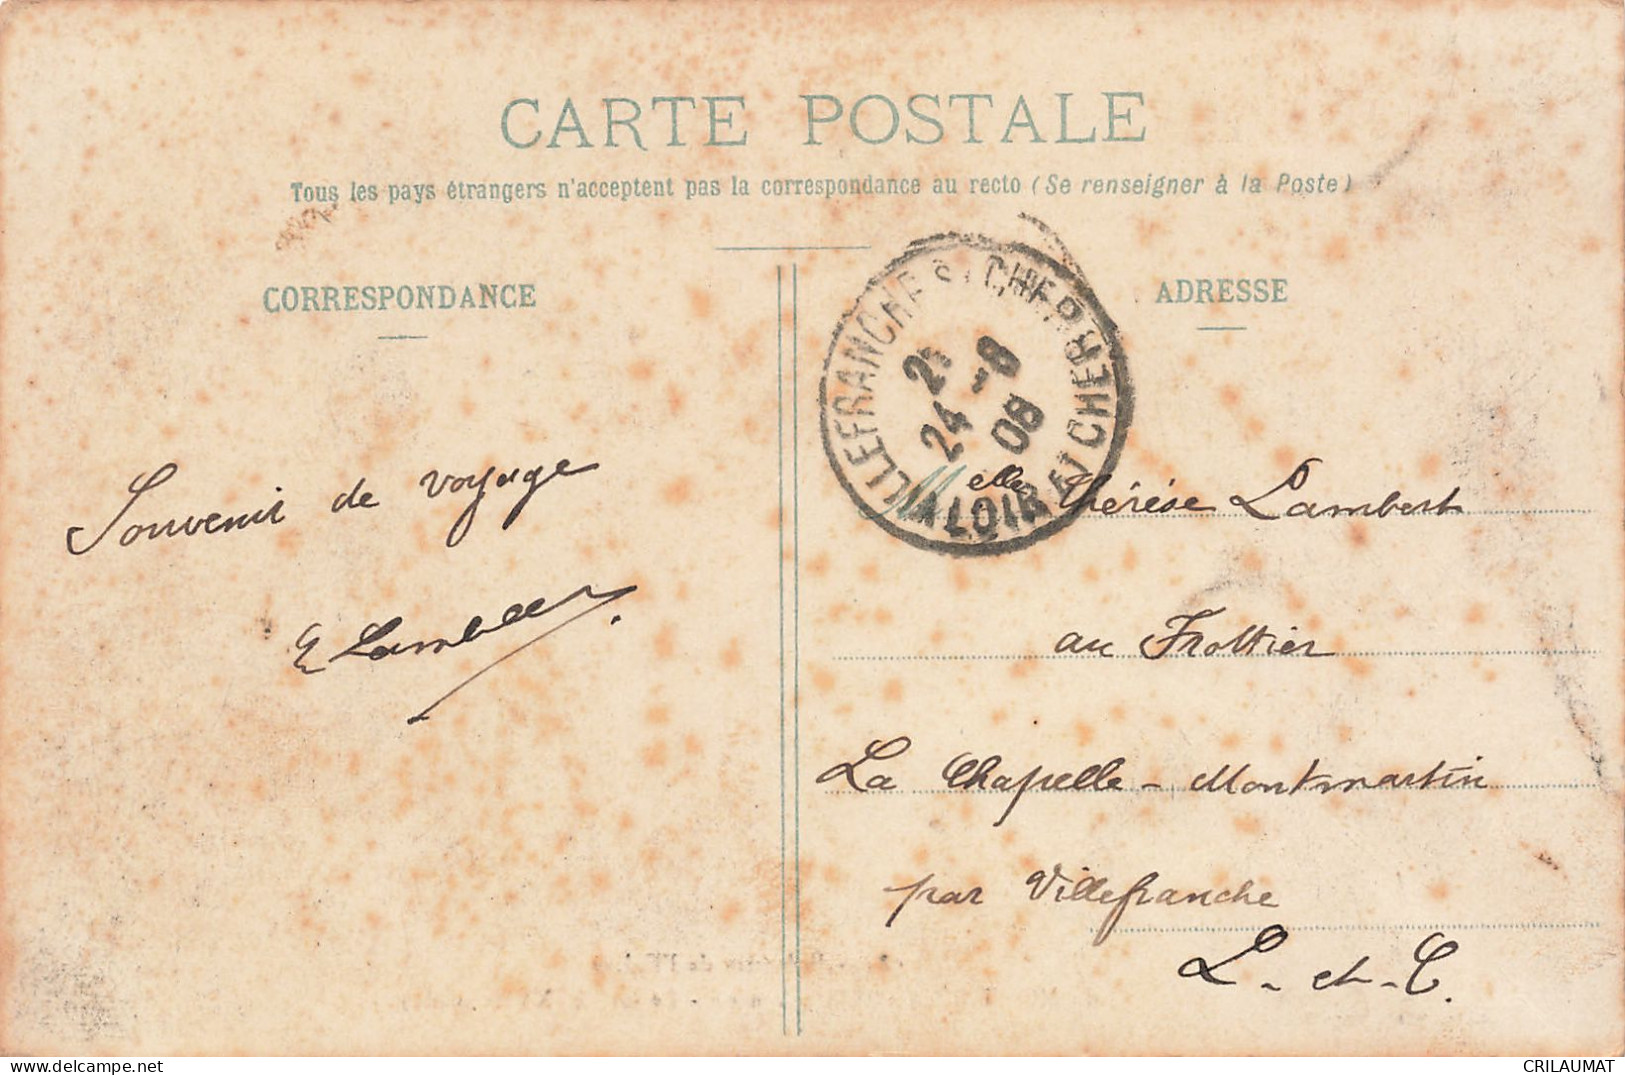 CARTE POSTALE
Tous les pays étrangers n'acceptent pas la correspondance au recto (Se renseigner à la Poste)
CORRESPONDANCE
Souvenir de voyage
E Lambert
ADRESSE
VILLEFRANCHE S. CHER
24 -8
08
LOIR ET CHER
Melle Thérèse Lambert
au Frottier
La Chapelle-Montmartin
par Villefranche
L-et-C.
www.delcampe.net
CRILAUMAT